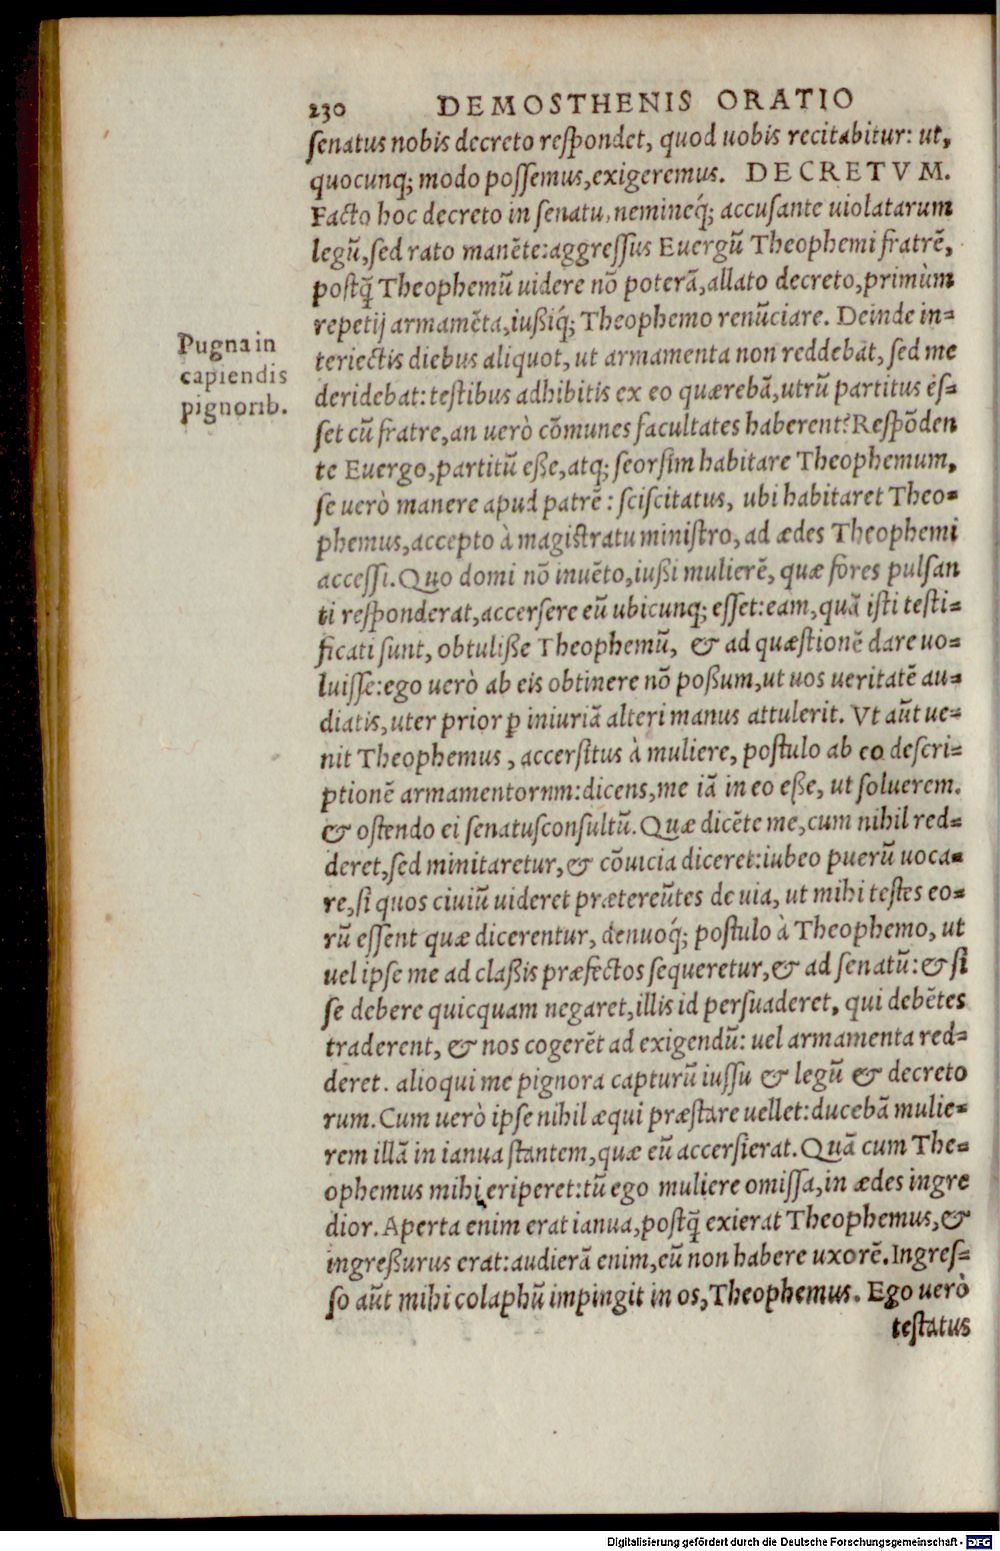 230 DEMOSTHENIS ORATIO
senatus nobis decreto respondet, quod uobis recitabitur: ut,
quocunq; modo possemus, exigeremus. DECRETVM.
Facto hoc decreto in senatu, nemineq́; accusante uiolatarum
legū, sed rato manēte: aggressus Euergū Theophemi fratrē,
postq̄ Theophemū uidere nō poterā, allato decreto, primùm
repetij armamēta, iußiq́; Theophemo renūciare. Deinde in-
teriectis diebus aliquot, ut armamenta non reddebat, sed me
deridebat: testibus adhibitis ex eo quærebā, utrū partitus es-
set cū fratre, an uerò cōmunes facultates haberent? Respōden
te Euergo, partitū eße, atq; seorsim habitare Theophemum,
se uerò manere apud patrē: sciscitatus, ubi habitaret Theo-
phemus, accepto à magistratu ministro, ad ædes Theophemi
accessi. Quo domi nō inuēto, iußi mulierē, quæ fores pulsan
ti responderat, accersere eū ubicunq; esset: eam, quā isti testi-
ficati sunt, obtuliße Theophemū, & ad quæstionē dare uo-
luisse: ego uerò ab eis obtinere nō poßum, ut uos ueritatē au-
diatis, uter prior p iniuriā alteri manus attulerit. Vt aūt ue-
nit Theophemus, accersitus à muliere, postulo ab eo descri-
ptionē armamentornm: dicens, me iā in eo eße, ut soluerem.
& ostendo ei senatusconsultū. Quæ dicēte me, cum nihil red-
deret, sed minitaretur, & cōuicia diceret: iubeo puerū uoca-
re, si quos ciuiū uideret prætereūtes de uia, ut mihi testes eo-
rū essent quæ dicerentur, denuoq́; postulo à Theophemo, ut
uel ipse me ad claßis præfectos sequeretur, & ad senatū: & si
se debere quicquam negaret, illis id persuaderet, qui debētes
traderent, & nos cogerēt ad exigendū: uel armamenta red-
deret. alioqui me pignora capturū iussu & legū & decreto
rum. Cum uerò ipse nihil æqui præstare uellet: ducebā mulie-
rem illā in ianua stantem, quæ eū accersierat. Quā cum The-
ophemus mihi eriperet: tū ego muliere omissa, in ædes ingre
dior. Aperta enim erat ianua, postq̄ exierat Theophemus, &
ingreßurus erat: audierā enim, eū non habere uxorē. Ingres-
so aūt mihi colaphū impingit in os, Theophemus. Ego uerò
testatus
Pugna in
capiendis
pignorib.
Digitalisierung gefördert durch die Deutsche Forschungsgemeinschaft - DFG